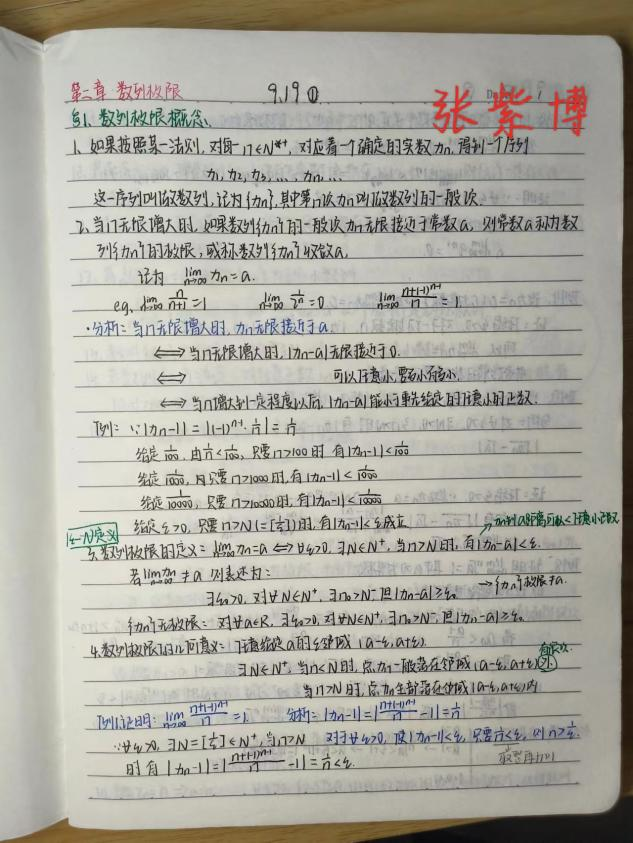 第二章 数列极限 9.19① 张紫博
§1. 数列极限概念.
1. 如果按照某一法则, 对每一n∈N*, 对应着一个确定的实数xn, 得到一个序列
x1, x2, x3, …, xn, …
这一序列叫做数列, 记为{xn}, 其中第n项xn叫做数列的一般项.
2. 当n无限增大时, 如果数列{xn}的一般项xn无限接近于常数a, 则常数a称为数
列{xn}的极限, 或称数列{xn}收敛a,
记为 lim n→∞ xn = a.
eg. lim n→∞ n/(n+1) = 1 lim n→∞ 1/2^n = 0 lim n→∞ (n+(-1)^(n-1))/n = 1
·分析: 当n无限增大时, xn无限接近于a
⟺ 当n无限增大时, |xn-a|无限接近于0.
⟺ 可以任意小, 要多小有多小.
⟺ 当n增大到一定程度以后, |xn-a|能小于事先给定的任意小的正数.
例: ∵|xn-1| = |(-1)^(n-1)·1/n| = 1/n
给定1/100, 由1/n<1/100, 只要n>100时 有|xn-1|<1/100
给定1/1000, 只要n>1000时, 有|xn-1|<1/1000
给定1/10000, 只要n>10000时, 有|xn-1|<1/10000
给定ε>0, 只要n>N(=[1/ε])时, 有|xn-1|<ε成立
ε-N定义
→xn到a的距离可以<任意小正数
3. 数列极限的定义: lim n→∞ xn=a ⟺ ∀ε>0, ∃N∈N⁺, 当n>N时, 有|xn-a|<ε.
若lim n→∞ xn≠a 则表述为:
∃ε0>0, 对∀N∈N⁺, ∃n0>N, 但|xn-a|≥ε0 →{xn}极限≠a.
{xn}无极限: 对∀a∈R, ∃ε0>0, 对∀N∈N⁺, ∃n0>N, 但|xn-a|≥ε0
4. 数列极限的几何意义: 任意给定a的ε邻域 (a-ε, a+ε),
∃N∈N⁺, 当n<N时, 点xn一般落在邻域(a-ε, a+ε)外 有限项.
当n>N时, 点xn全部落在邻域(a-ε, a+ε)内
例1.证明: lim n→∞ (n+(-1)^(n-1))/n = 1. 分析: |xn-1| = |(n+(-1)^(n-1))/n - 1| = 1/n
∵∀ε>0, ∃N=[1/ε]∈N⁺, 当n>N 对于∀ε>0, 使|xn-1|<ε, 只要1/n<ε, 则n>1/ε.
时 有|xn-1| = |(n+(-1)^(n-1))/n - 1| = 1/n < ε.